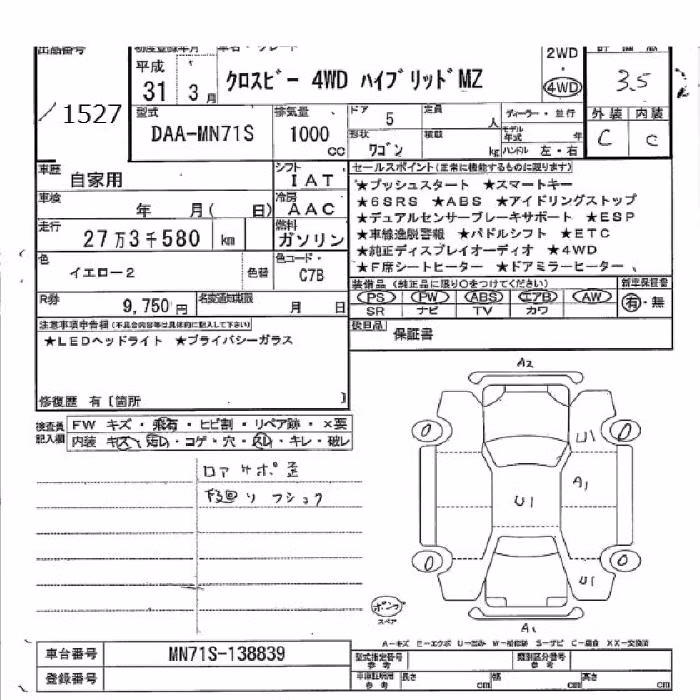 出品番号
1527
初度登録年月
平成
31 3月
車名・グレード
クロスビー 4WD ハイブリッド MZ
2WD
・
4WD
評価点
3.5
型式
DAA-MN71S
排気量
1000
cc
ドア
5
定員
人
形状
ワゴン
積載
kg
ディーラー・並行
モデル年式 年
ハンドル 左・右
外装 内装
C C
車歴
自家用
シフト
IAT
車検
年 月( 日)
冷房
AAC
走行
27万3千580 km
燃料
ガソリン
色
イエロー2
色替
色コード・
C7B
R券
9,750円
名変通知期限
月 日
セールスポイント(正常に機能するものに限ります)
★プッシュスタート ★スマートキー
★6SRS ★ABS ★アイドリングストップ
★デュアルセンサーブレーキサポート ★ESP
★車線逸脱警報 ★パドルシフト ★ETC
★純正ディスプレイオーディオ ★4WD
★F席シートヒーター ★ドアミラーヒーター
装備品 (純正品に限り○をつけてください)
PS PW ABS エアB AW
SR ナビ TV カワ
新車保証書
有・無
後日品
保証書
注意事項申告欄(不具合内容等は具体的に記入して下さい)
★LEDヘッドライト ★プライバシーガラス
修復歴 有〔箇所 〕
検査員
記入欄
FW キズ・飛石・ヒビ割・リペア跡・×要
内装 キズ・汚れ・コゲ・穴・スレ・キレ・破レ
コアサポ歪
下廻りフショク
A2
U1
A1
U1
U1
A1
スペア
A−キズ E−エクボ U−凹み W−補修跡 S−サビ C−腐食 XX−交換済
車台番号 MN71S-138839
登録番号
型式指定番号
参考
類別区分番号
参考
車検証明用
参考
長さ cm
幅 cm
高さ cm